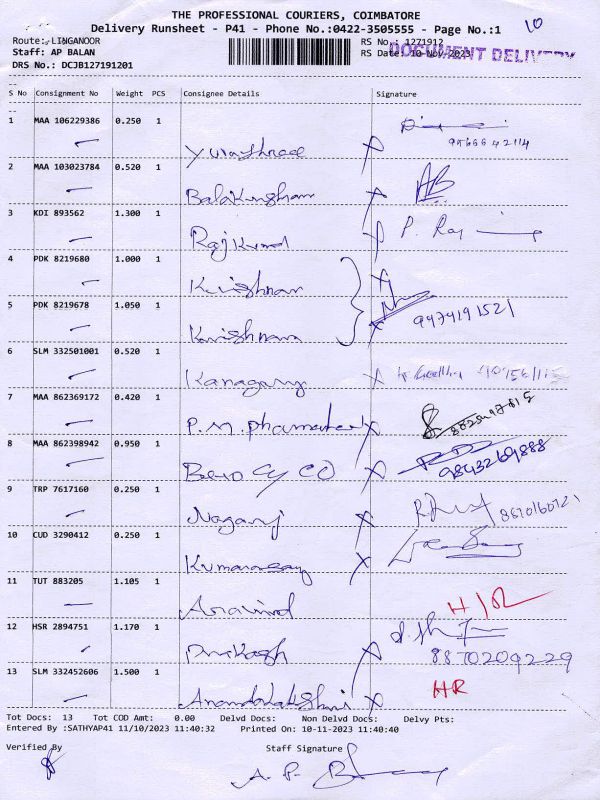 THE PROFESSIONAL COURIERS, COIMBATORE
10
Delivery Runsheet - P41 - Phone No.:0422-3505555 - Page No.:1
Route: LINGANOOR RS No.: 1271912
Staff: AP BALAN RS Date: 10-Nov-2023
DOCUMENT DELIVERY
DRS No.: DCJB127191201
S No Consignment No Weight PCS Consignee Details Signature
1 MAA 106229386 0.250 1
2 MAA 103023784 0.520 1
Balakrishnan AB
3 KDI 893562 1.300 1
Rajkumar P. Raj
4 PDK 8219680 1.000 1
Krishnan
5 PDK 8219678 1.050 1
Krishnan 9474191521
6 SLM 332501001 0.520 1
Kanagaraj
7 MAA 862369172 0.420 1
P.M. Pharmatech
8 MAA 862398942 0.950 1
CO 9843269888
9 TRP 7617160 0.250 1
Nagaraj
10 CUD 3290412 0.250 1
Kumarasamy
11 TUT 883205 1.105 1
Aravind H/R
12 HSR 2894751 1.170 1
Prakash 8870209229
13 SLM 332452606 1.500 1
Anandalakshmi HR
Tot Docs: 13 Tot COD Amt: 0.00 Delvd Docs: Non Delvd Docs: Delvy Pts:
Entered By :SATHYAP41 11/10/2023 11:40:32 Printed On: 10-11-2023 11:40:40
Verified By Staff Signature
A. P.